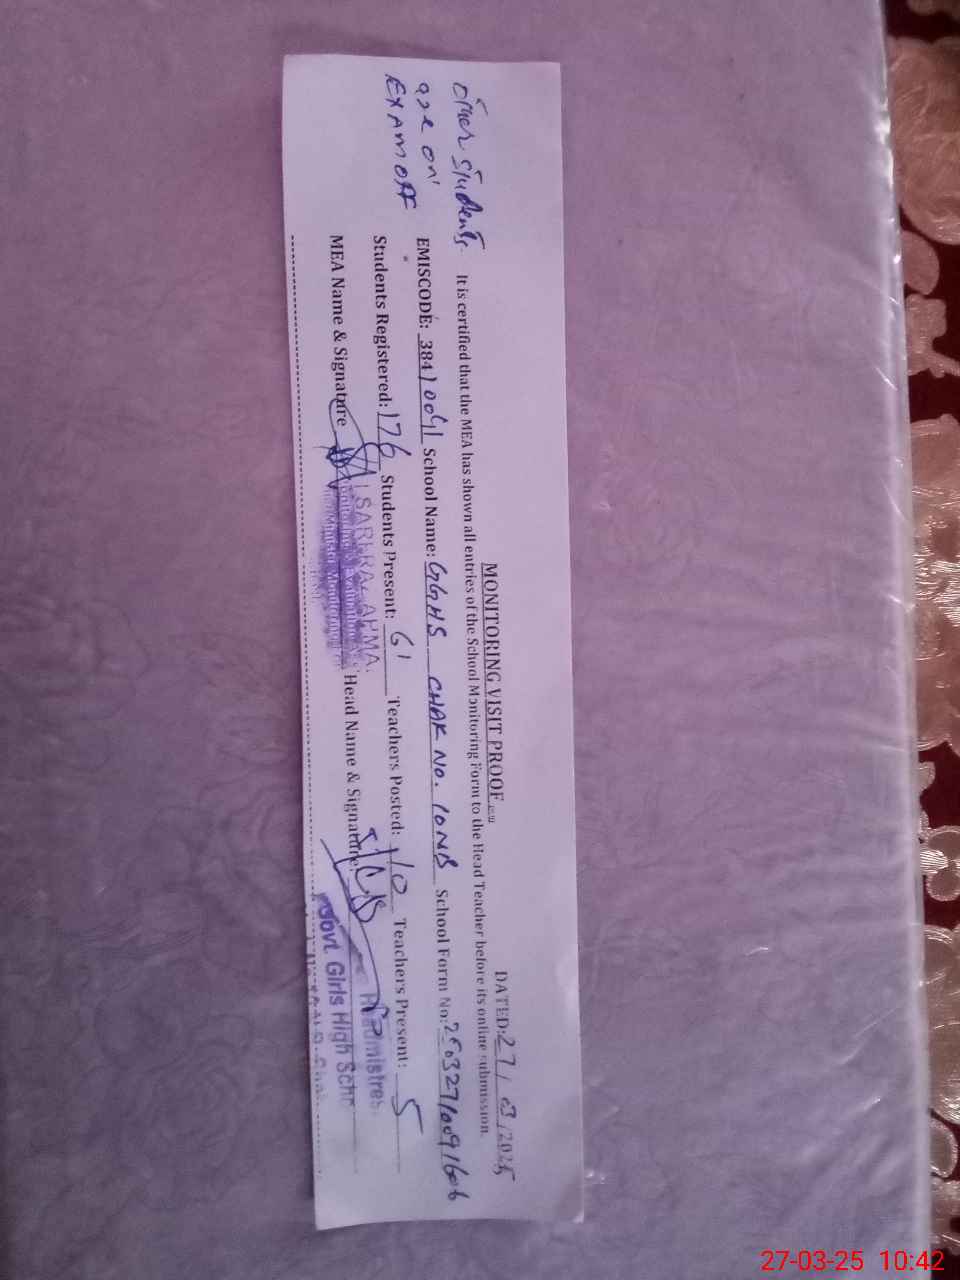 MONITORING VISIT PROOF
DATED: 27/03/2025
It is certified that the MEA has shown all entries of the School Monitoring Form to the Head Teacher before its online submission.
EMISCODE: 38410041 School Name: GGHS CHAK No. 10NB School Form No:
Students Registered: 176 Students Present: 61 Teachers Posted: 10 Teachers Present: 5
MEA Name & Signature Head Name & Signature:
Other students
are on
EXAM OFF
Govt. Girls High
27-03-25 10:42